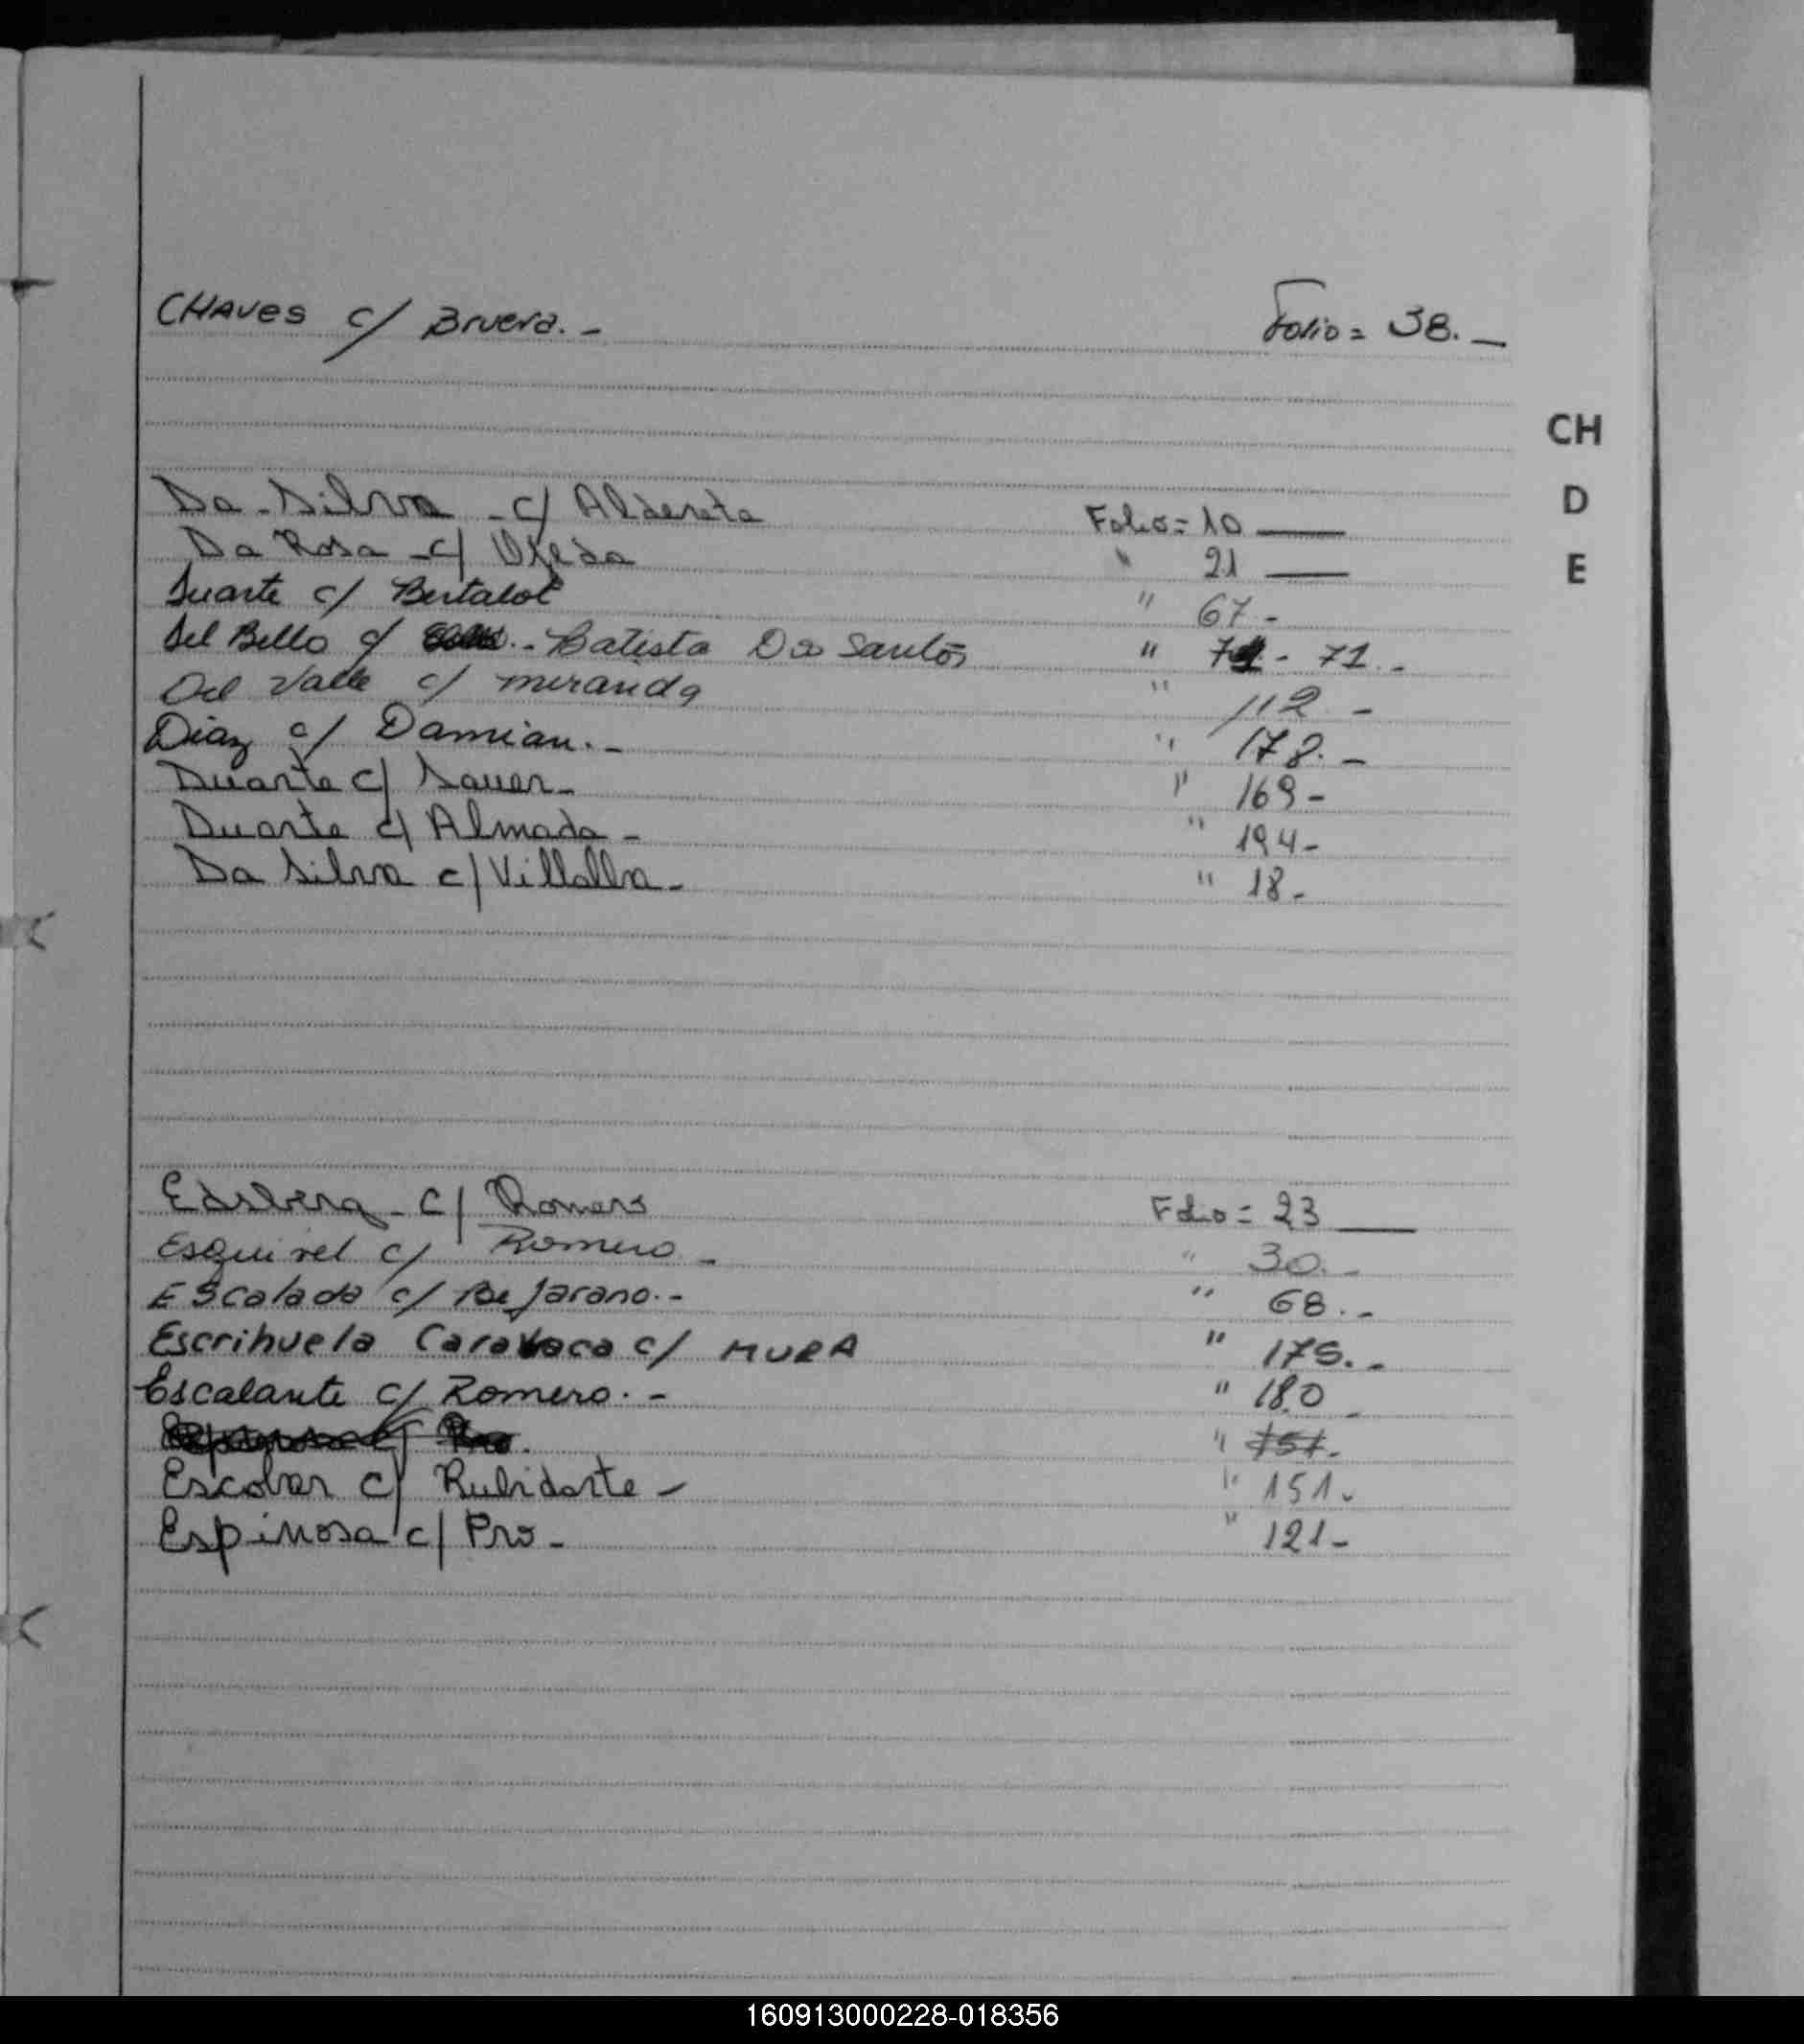 CHAVES c/ Bruera.- Folio= 38.-
CH
Da Silva - c/ Aldereta Folio= 10
D
Da Rosa - c/ Ojeda " 21
E
Duarte c/ Bertalot " 67-
Del Bello c/ - Batista Da Santos " 71.-
Del Valle c/ Miranda " 112-
Diaz c/ Damian.- " 178.-
Duarte c/ Sauer- " 169-
Duarte c/ Almada- " 194-
Da Silva c/ Villalba- " 18-
c/ Romero Folio= 23
Esquivel c/ Romero- " 30.-
Escalada c/ Bejarano.- " 68.-
Escrihuela Caravaca c/ MURA " 175.-
Escalante c/ Romero.- " 180-
" 151-
Escobar c/ Rubidarte- " 151-
Espinosa c/ Pro- " 121-
160913000228-018356